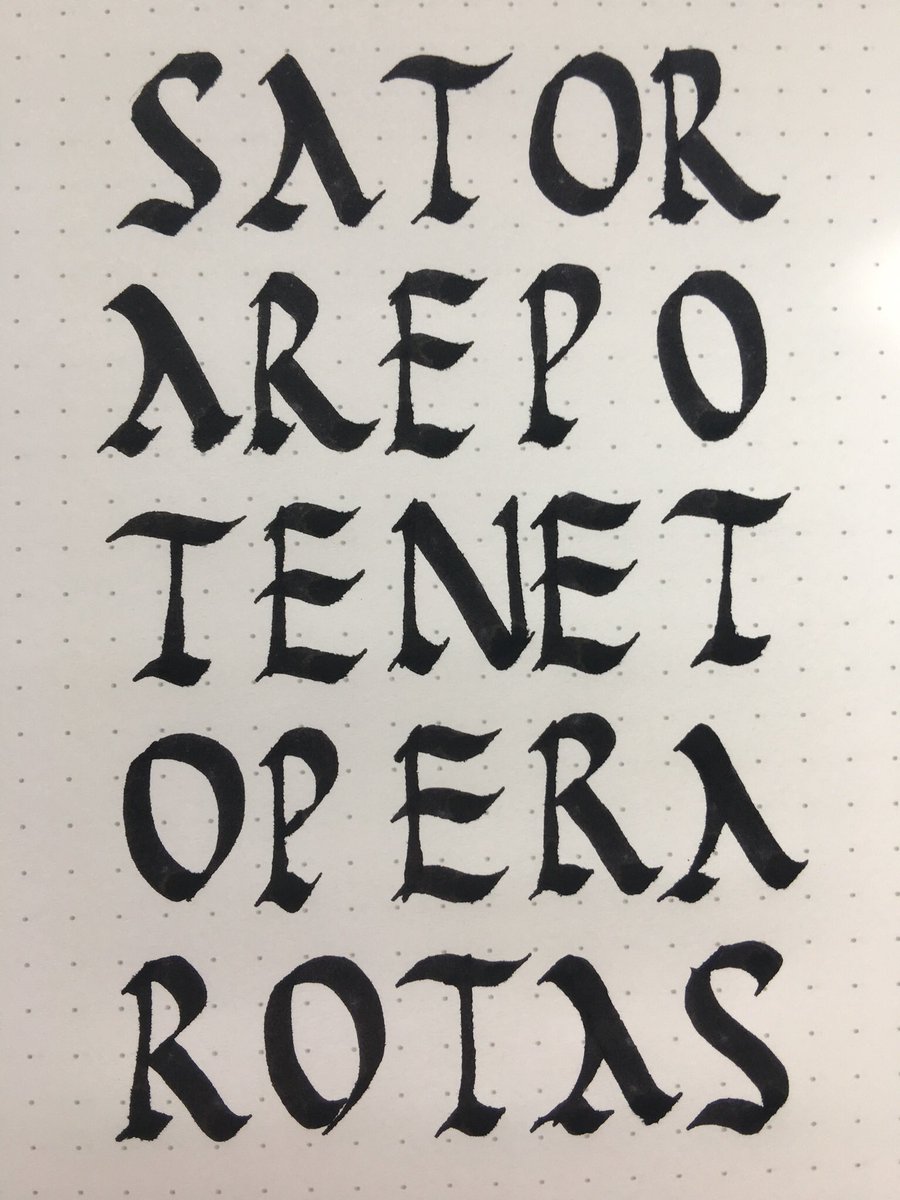 SATOR
AREPO
TENET
OPERA
ROTAS